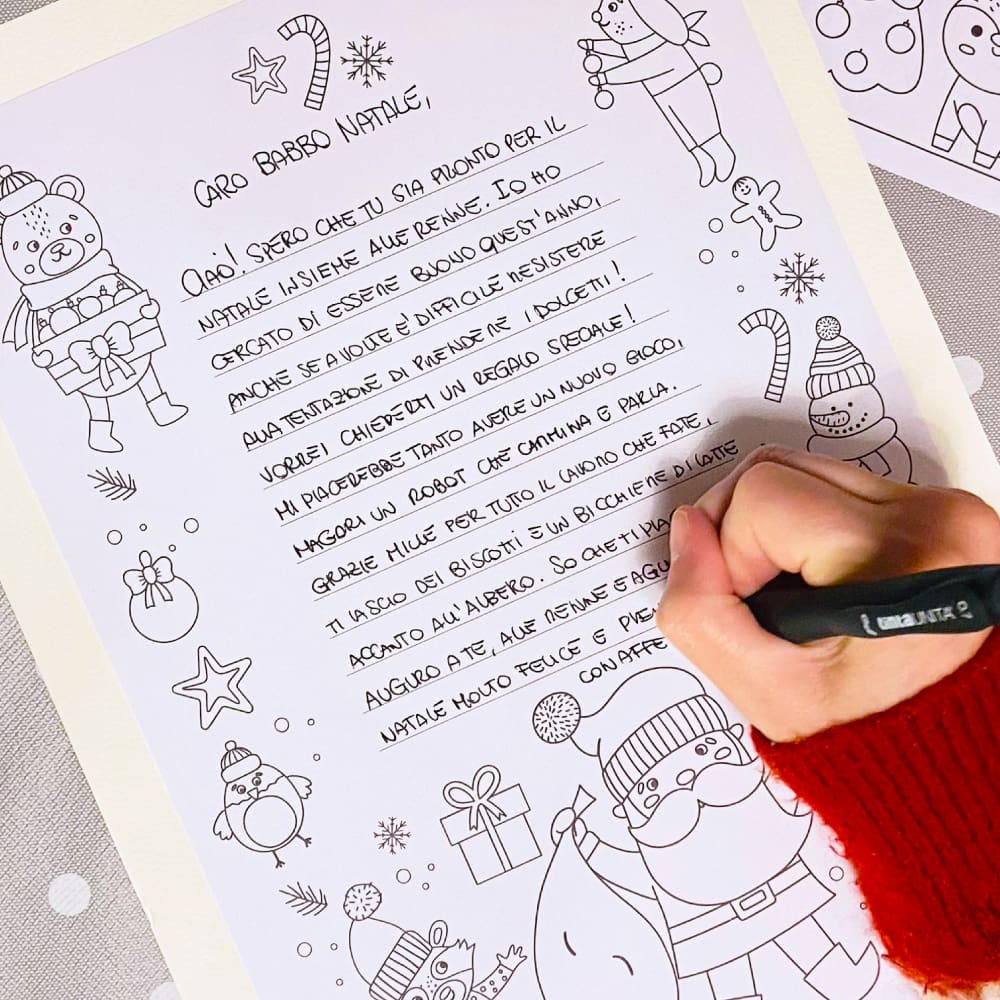 CARO BABBO NATALE,
CIAO! SPERO CHE TU SIA PRONTO PER IL
NATALE INSIEME ALLE RENNE. IO HO
CERCATO DI ESSERE BUONO QUEST'ANNO,
ANCHE SE A VOLTE E' DIFFICILE RESISTERE
ALLA TENTAZIONE DI PRENDERE I DOLCETTI!
VORREI CHIEDERTI UN REGALO SPECIALE!
MI PIACEREBBE TANTO AVERE UN NUOVO GIOCO,
MAGARI UN ROBOT CHE CAMMINA E PARLA.
GRAZIE MILLE PER TUTTO IL LAVORO CHE FATE,
TI LASCIO DEI BISCOTTI E UN BICCHIERE DI LATTE
ACCANTO ALL'ALBERO. SO CHE TI
AUGURO A TE, ALLE RENNE E
NATALE MOLTO FELICE E
CON